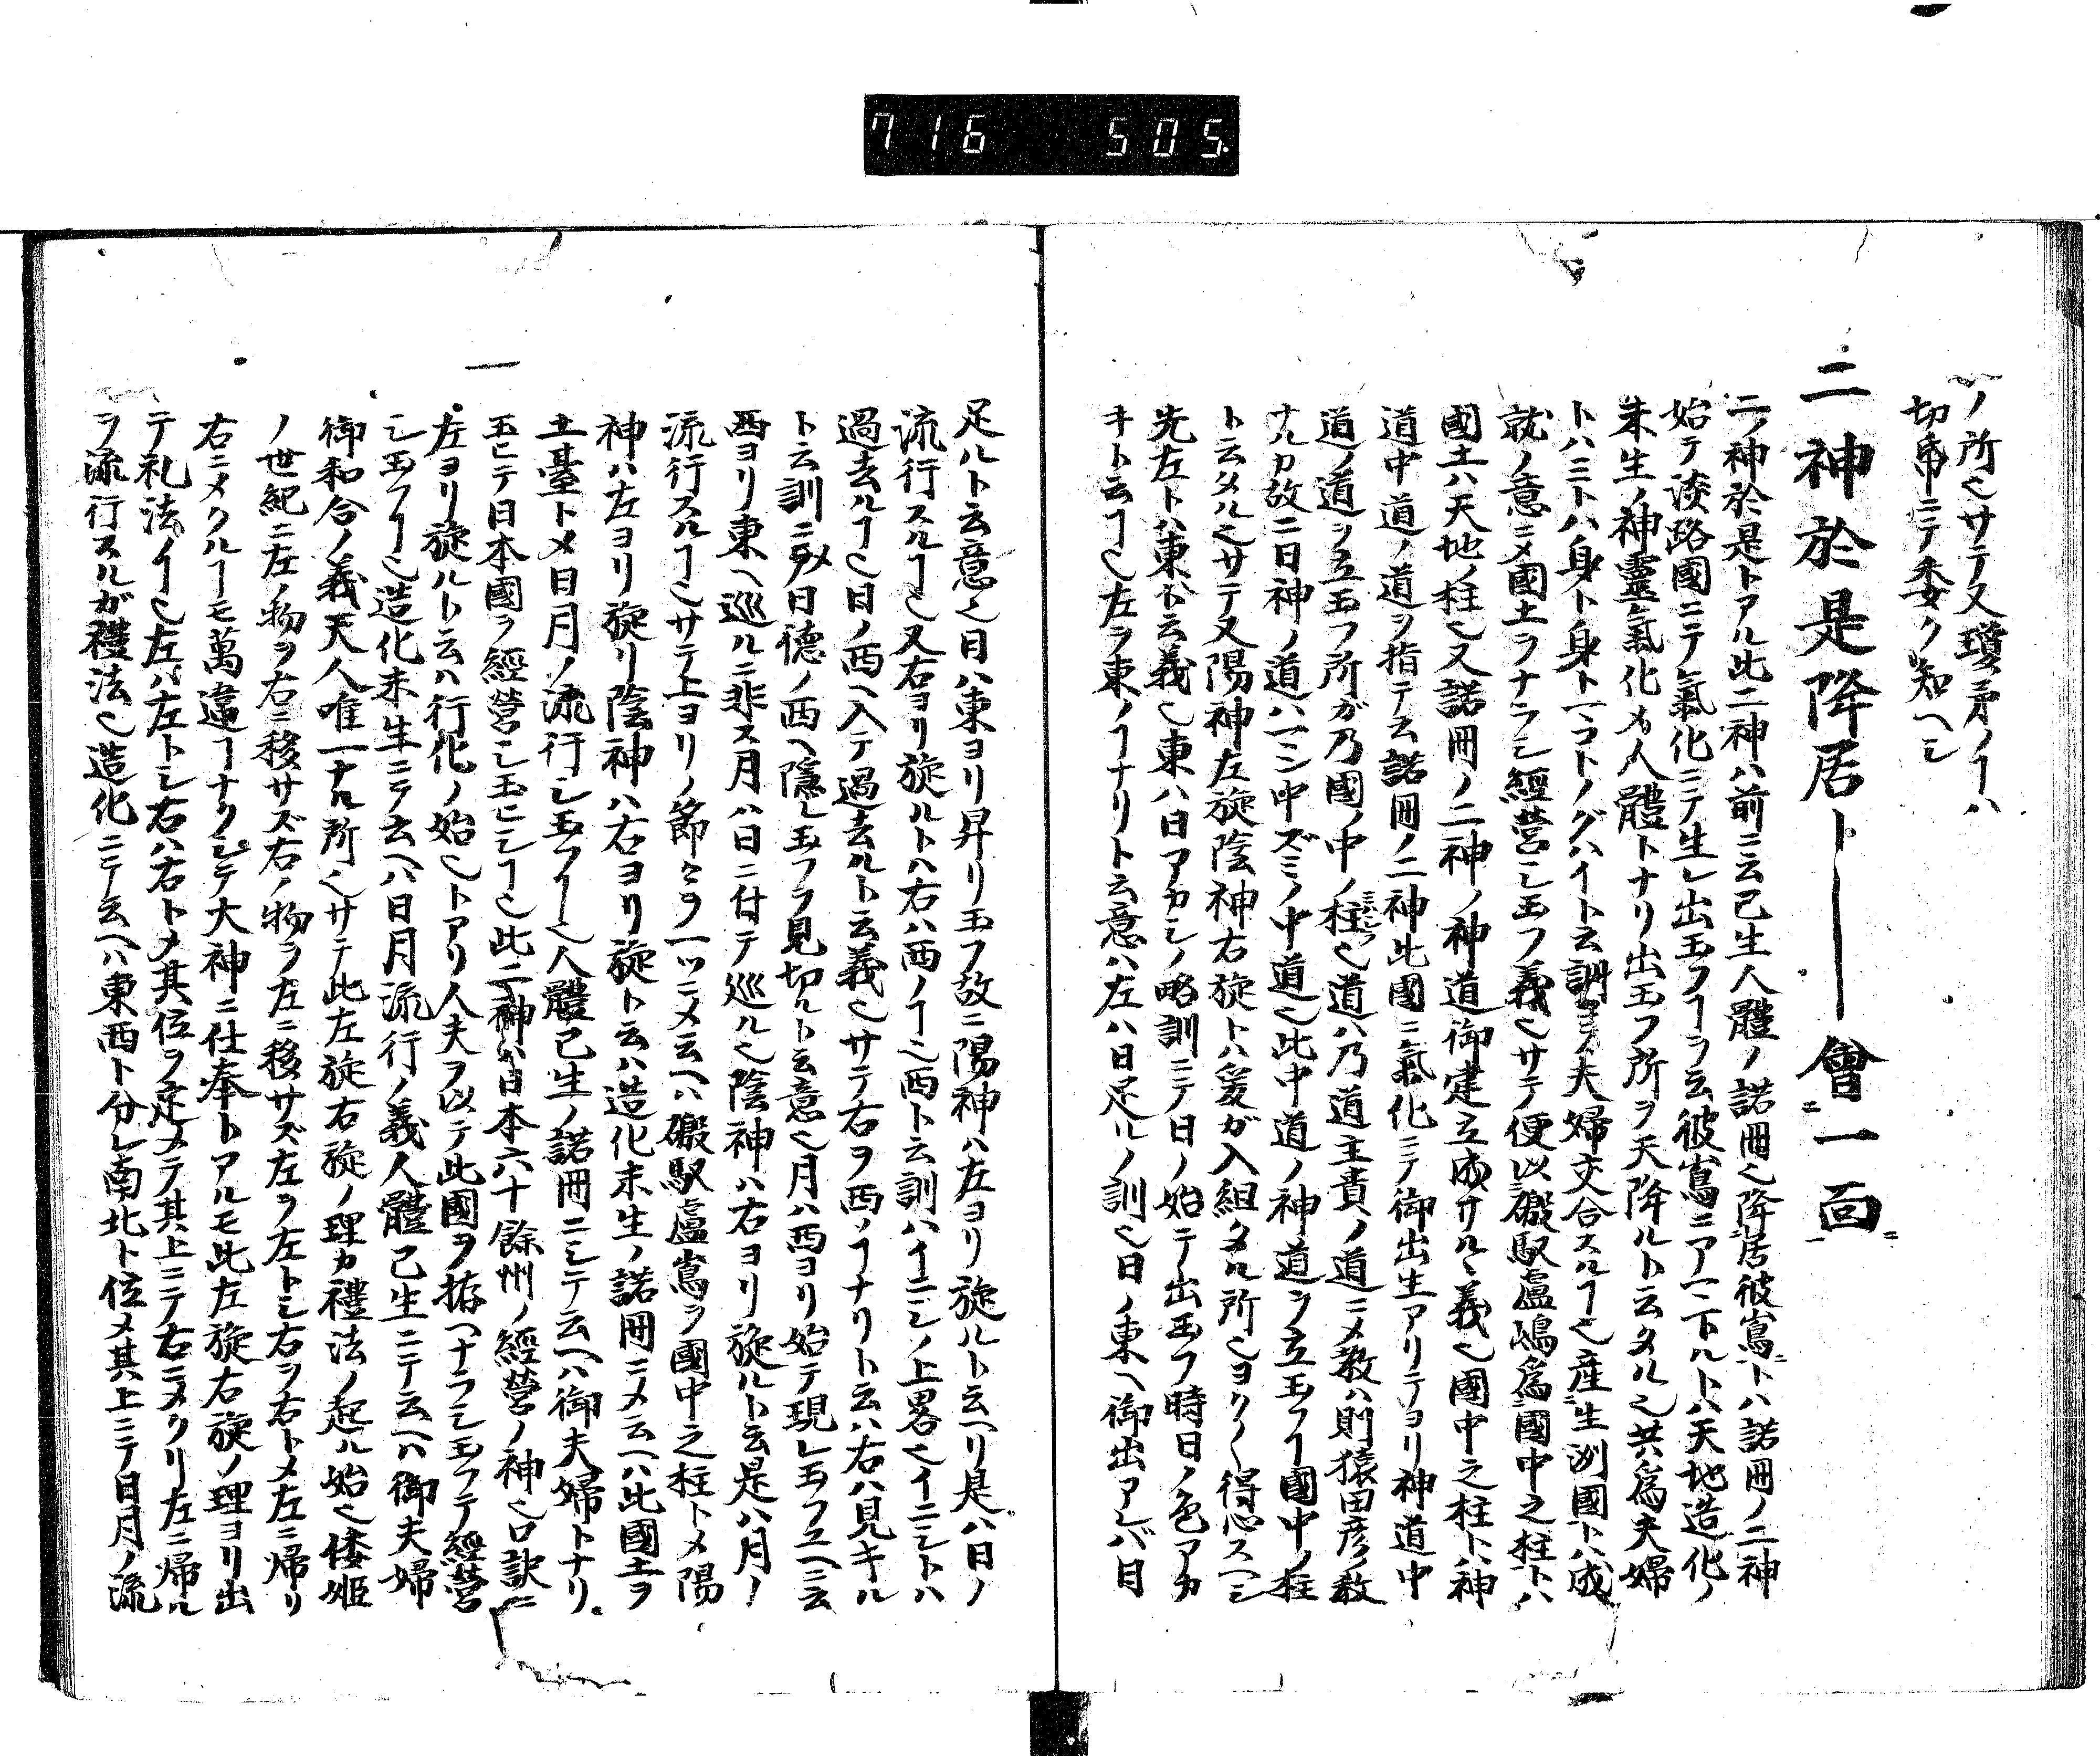 716 505.
ノ所也サテ又瓊矛ノヿハ
切紙ニテ委ク知ヘシ
二神於是降居ト――會一面
二ノ神於是トアル此二神ハ前ニ云已生人體ノ諾冊也降居彼嶌トハ諾冊ノ二神
始テ淡路國ニテ氣化ニテ生レ出玉フヿヲ云彼嶌ニアマ下ルトハ天地造化ノ
未生ノ神靈氣化〆人體トナリ出玉フ所ヲ天降ルト云タル也共為夫婦
トハミトハ身ト身ト一ツトノグハイト云訓ニテ夫婦交合スルヿ也産生洲國トハ成
就ノ意ニ〆國土ヲナラシ經營シ玉フ義也サテ便以磤馭盧嶋為國中之柱トハ
國土ハ天地ノ柱也又諾冊ノ二神ノ神道御建立成サルヽ義也國中之柱トハ神
道中道ノ道ヲ指テ云諾冊ノ二神此國ニ氣化ニテ御出生アリテヨリ神道中
道ノ道ヲ立玉フ所ガ乃國ノ中ノ柱也道ハ乃道主貴ノ道ニ〆教ハ則猿田彦ノ教
ナルカ故ニ日神ノ道ハ一シ中ズミノ中道也此中道ノ神道ヲ立玉フヿ國中ノ柱
ト云タル也サテ又陽神左旋陰神右旋トハ爰ガ入組タル所也ヨク〱得心スヘシ
先左トハ東ト云義也東ハ日アカシノ略訓ニテ日ノ始テ出玉フ時日ノ色アカ
キト云ヿ也左ヲ東ノヿナリト云意ハ左ハ日足ルノ訓也日ノ東ヘ御出アレバ日
足ルト云意也日ハ東ヨリ昇リ玉フ故ニ陽神ハ左ヨリ旋ルト云ヘリ是ハ日ノ
流行スルヿ也又右ヨリ旋ルトハ右ハ西ノヿ也西ト云訓ハイニシノ上畧也イニシトハ
過去ルヿ也日ノ西ヘ入テ過去ルト云義也サテ右ヲ西ノヿナリト云ハ右ハ見キル
ト云訓ニ〆日德ノ西ヘ隠レ玉フヲ見切ルト云意也月ハ西ヨリ始テ現レ玉フユヘニ云
西ヨリ東ヘ巡ルニ非ス月ハ日ニ付テ巡ル也陰神ハ右ヨリ旋ルト云是ハ月ノ
流行スルヿ也サテ上ヨリノ節々ヲ一ツニ〆云ヘハ磤馭盧嶌ヲ國中之柱ト〆陽
神ハ左ヨリ旋リ陰神ハ右ヨリ旋ト云ハ造化未生ノ諾冊ニ〆云ヘハ此國土ヲ
土臺ト〆日月ノ流行シ玉フヿ也人體已生ノ諾冊ニシテ云ヘハ御夫婦トナリ
玉ヒテ日本國ヲ經營シ玉ヒシヿ也此二神ハ日本六十餘州ノ經營ノ神也口訣ニ
左ヨリ旋ルト云ハ行化ノ始也トアリ人夫ヲ以テ此國ヲ拵ヘナラシ玉フテ經營
シ玉フヿ也造化未生ニテ云ヘハ日月流行ノ義人體已生ニテ云ヘハ御夫婦
御和合ノ義天人唯一ナル所也サテ此左旋右旋ノ理カ禮法ノ起ル始也倭姫
ノ世紀ニ左ノ物ヲ右ニ移サズ右ノ物ヲ左ニ移サズ左ヲ左トシ右ヲ右ト〆左ニ帰リ
右ニメクルヿモ萬違ヿナクシテ大神ニ仕奉トアルモ此左旋右旋ノ理ヨリ出
テ礼法イヿ也左ハ左トシ右ハ右ト〆其位ヲ定メテ其上ニテ右ニメクリ左ニ帰ル
ヲ流行スルガ禮法也造化ニテ云ヘハ東西ト分レ南北ト位〆其上ニテ日月ノ流